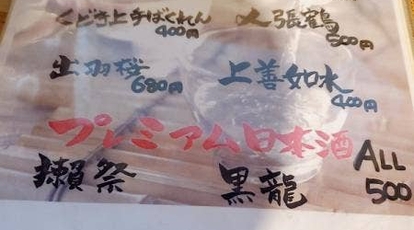 くどき上手ばくれん 400円
〆張鶴 500円
出羽桜 680円
上善如水 400円
プレミアム日本酒 ALL 500
獺祭
黒龍